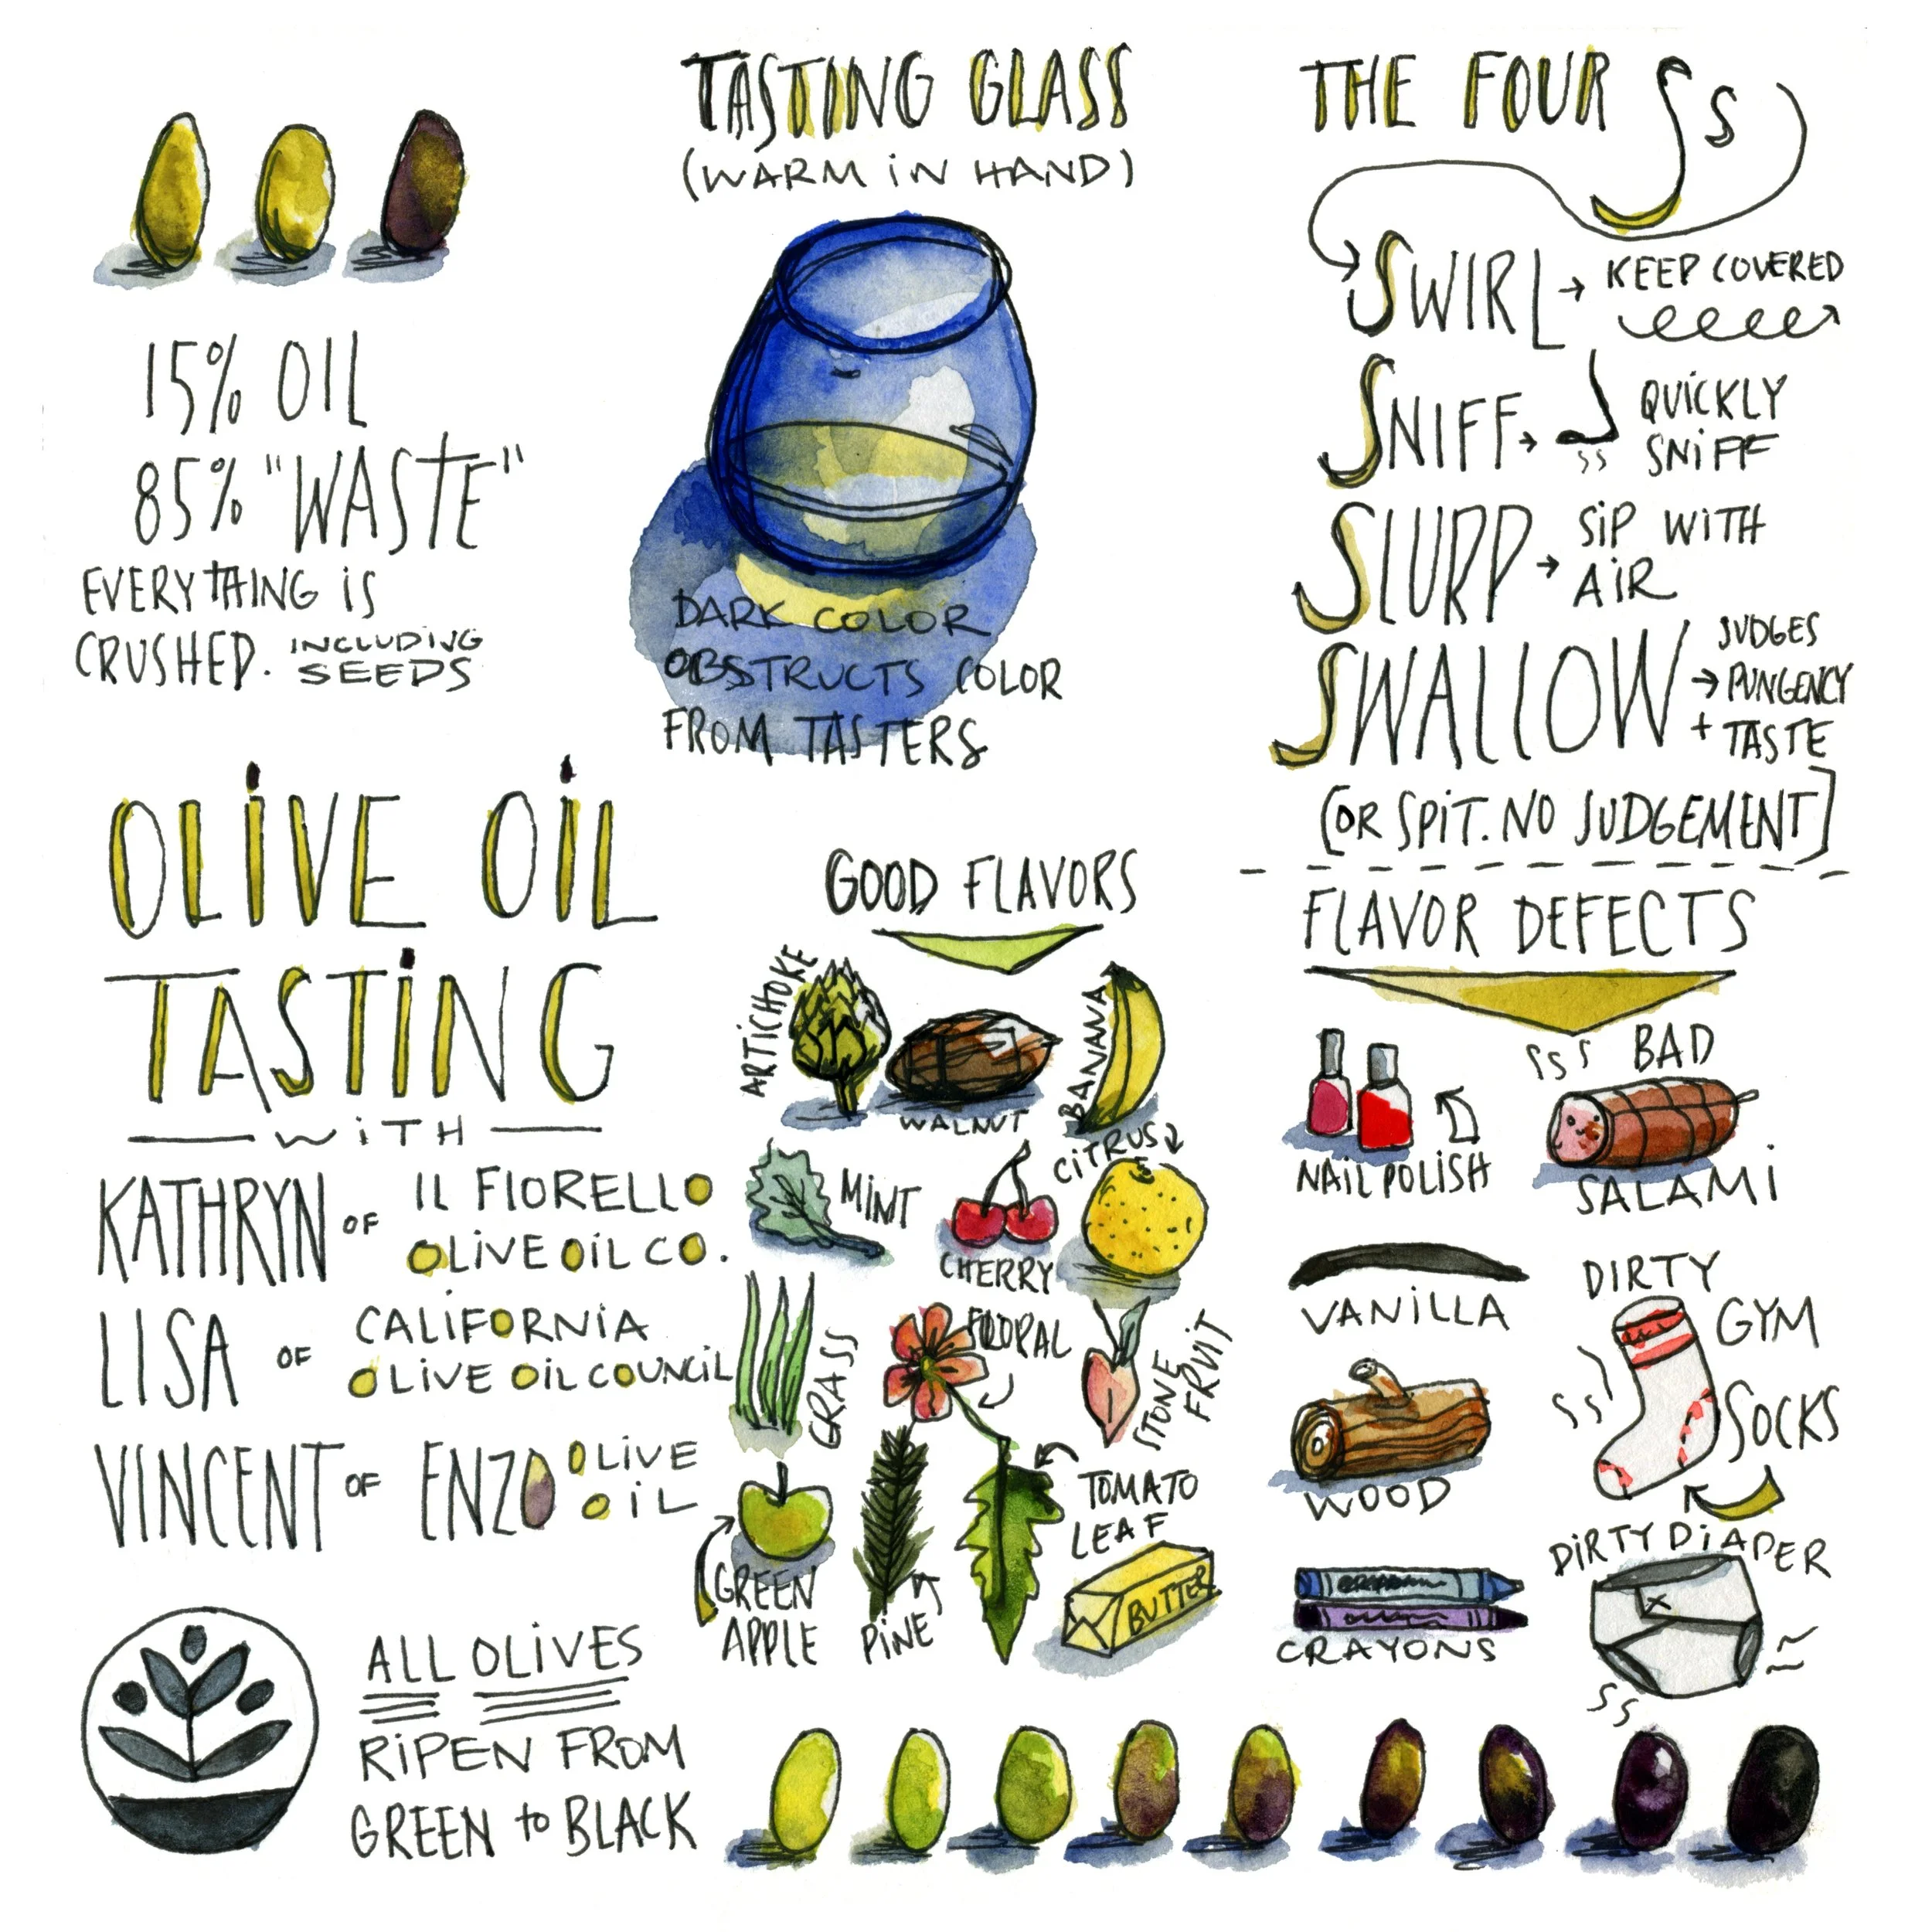 15% OIL
85% "WASTE"
EVERYTHING IS
CRUSHED. INCLUDING
SEEDS
TASTING GLASS
(WARM IN HAND)
DARK COLOR
OBSTRUCTS COLOR
FROM TASTERS
THE FOUR Ss
SWIRL → KEEP COVERED
SNIFF → QUICKLY
SNIFF
SLURP → SIP WITH
AIR
SWALLOW → JUDGES
PUNGENCY
+ TASTE
[OR SPIT. NO JUDGEMENT]
OLIVE OIL
TASTING
WITH
KATHRYN OF IL FIORELLO
OLIVE OIL CO.
LISA OF CALIFORNIA
OLIVE OIL COUNCIL
VINCENT OF ENZO OLIVE
OIL
ALL OLIVES
RIPEN FROM
GREEN to BLACK
GOOD FLAVORS
ARTICHOKE
WALNUT
BANANA
MINT
CHERRY
CITRUS
GRASS
FLORAL
STONE
FRUIT
GREEN
APPLE
PINE
TOMATO
LEAF
BUTTER
FLAVOR DEFECTS
NAIL POLISH
SSS BAD
SALAMI
VANILLA
DIRTY
GYM
SOCKS
SS
WOOD
CRAYONS
DIRTY DIAPER
SS